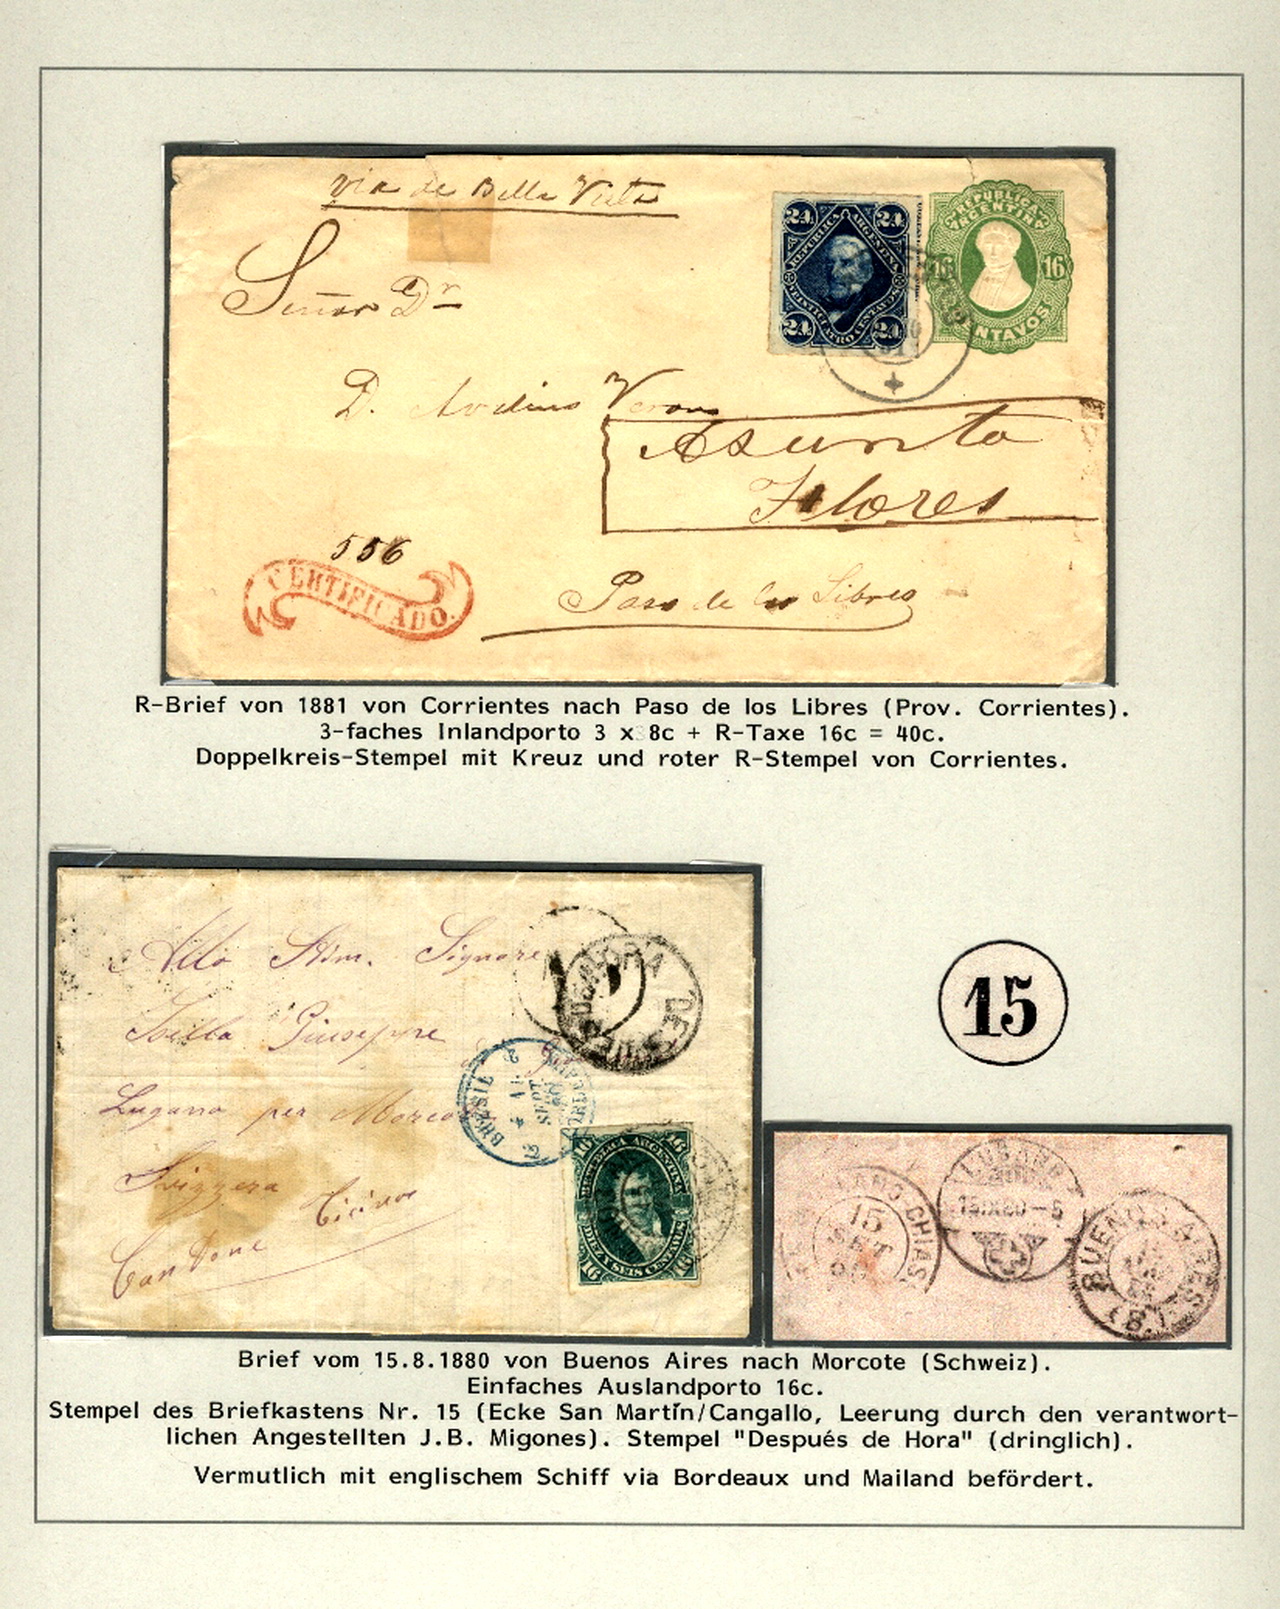 via de Bella Vista
24 24
REPUBLICA ARGENTINA
VEINTICUATRO CENTAVOS
24 24
REPUBLICA
ARGENTINA
16 16
CENTAVOS
Señor Dr
D. Avelino Veron
Asunta
Flores
556
CERTIFICADO.
Paso de los Libres
R-Brief von 1881 von Corrientes nach Paso de los Libres (Prov. Corrientes).
3-faches Inlandporto 3 x 8c + R-Taxe 16c = 40c.
Doppelkreis-Stempel mit Kreuz und roter R-Stempel von Corrientes.
Signore
Giuseppe
Lugano per Morcote
Svizzera
Ticino
Cantone
DE HORA DES
BRESIL
SEPT
16 16
REPUBLICA ARGENTINA
DIEZ Y SEIS CENTAVOS
16 16
15
CHIASSO
15
SET
LUGANO
15.IX.80-5
BUENOS AIRES
(B.)
Brief vom 15.8.1880 von Buenos Aires nach Morcote (Schweiz).
Einfaches Auslandporto 16c.
Stempel des Briefkastens Nr. 15 (Ecke San Martín/Cangallo, Leerung durch den verantwort-
lichen Angestellten J.B. Migones). Stempel "Después de Hora" (dringlich).
Vermutlich mit englischem Schiff via Bordeaux und Mailand befördert.